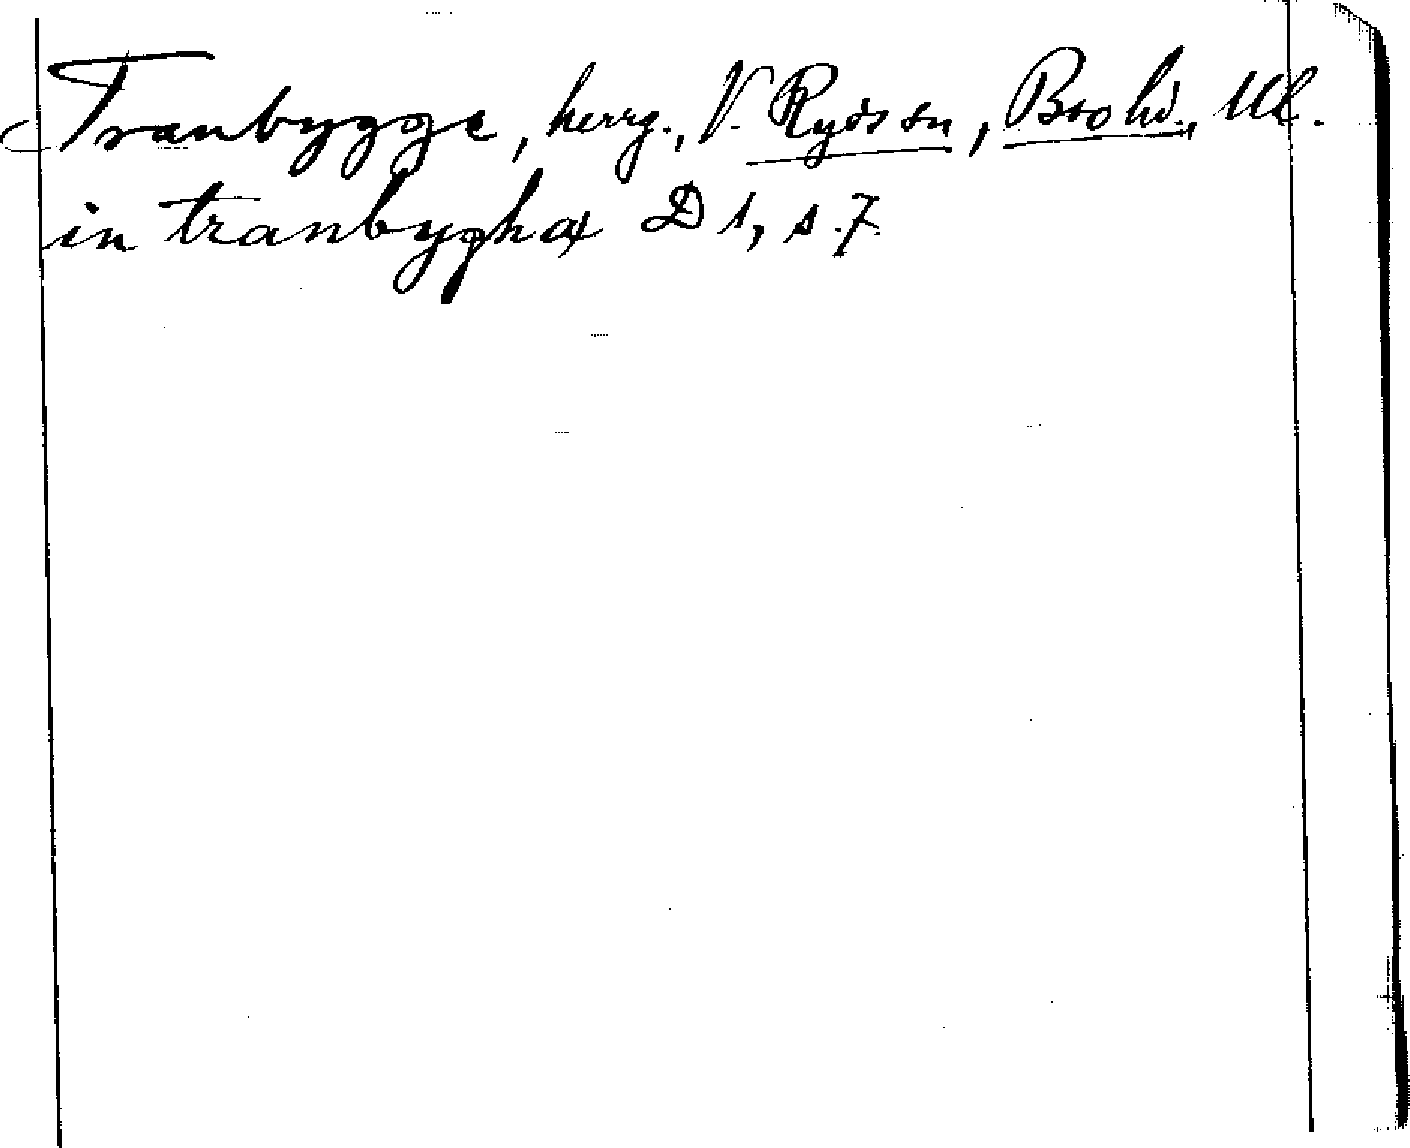 Tranbygge, herrg., V. Ryds sn, Bro hd., Ul.
in tranbyghæ D 1, s. 7